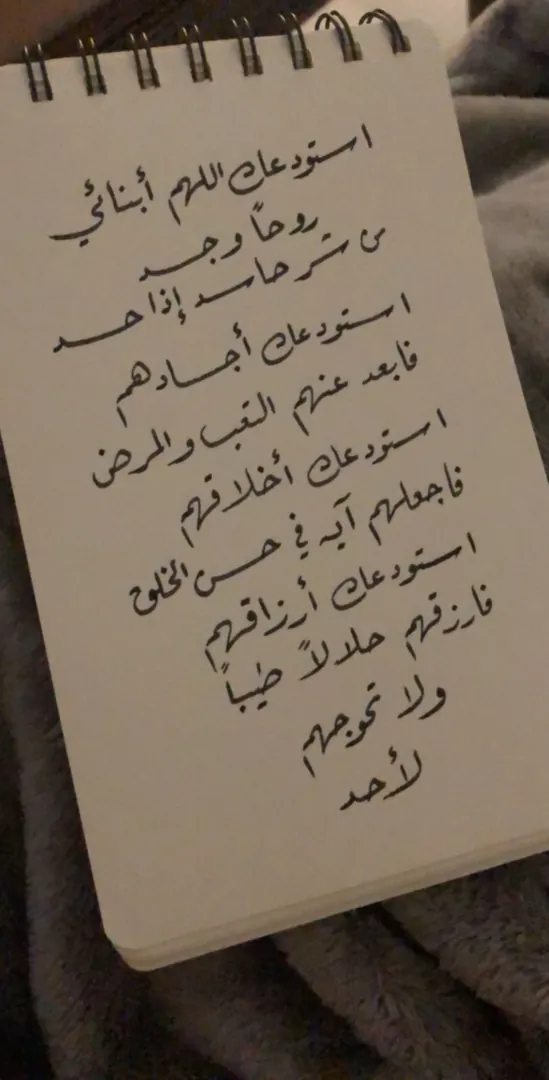 استودعك اللهم أبنائي
روحاً وجسد
من شر حاسد إذا حسد
استودعك أجسادهم
فابعد عنهم التعب والمرض
استودعك أخلاقهم
فاجعلهم آيه في حسن الخلق
استودعك أرزاقهم
فارزقهم حلالاً طيباً
ولا تحوجهم
لأحد